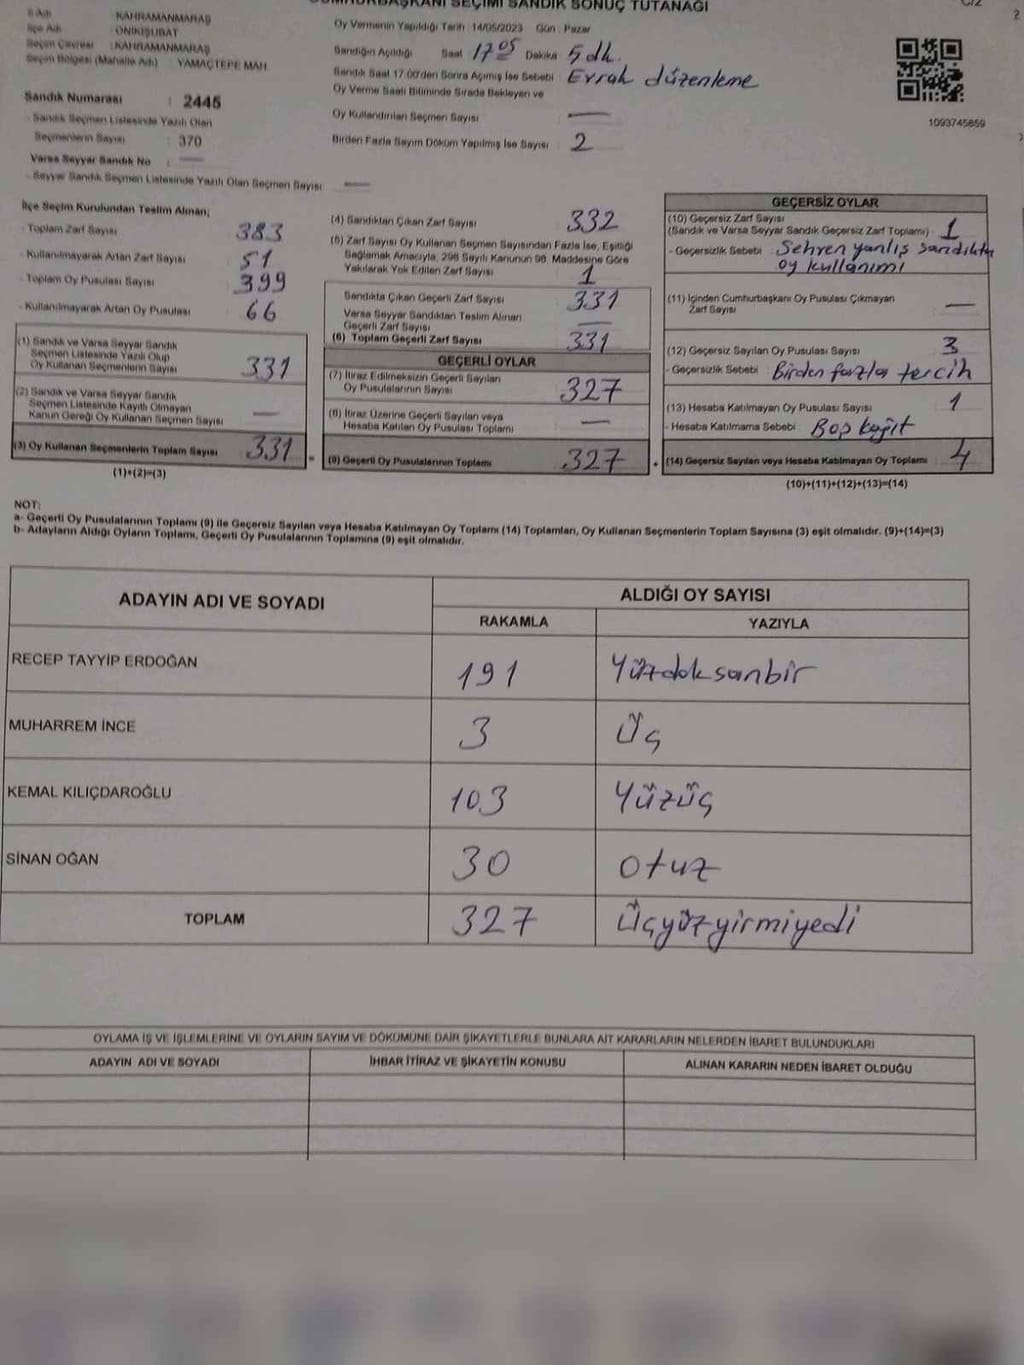 CUMHURBAŞKANI SEÇİMİ SANDIK SONUÇ TUTANAĞI
İl Adı : KAHRAMANMARAŞ
İlçe Adı : ONİKİŞUBAT
Seçim Çevresi : KAHRAMANMARAŞ
Seçim Bölgesi (Mahalle Adı) : YAMAÇTEPE MAH
Sandık Numarası : 2445
- Sandık Seçmen Listesinde Yazılı Olan
Seçmenlerin Sayısı : 370
Varsa Seyyar Sandık No : —
- Seyyar Sandık Seçmen Listesinde Yazılı Olan Seçmen Sayısı : —
Oy Vermenin Yapıldığı Tarih : 14/05/2023 Gün : Pazar
Sandığın Açıldığı Saat 17 05 Dakika 5 dk.
Sandık Saat 17.00'den Sonra Açımış İse Sebebi : Evrak düzenleme
Oy Verme Saati Bitiminde Sırada Bekleyen ve
Oy Kullandırılan Seçmen Sayısı : —
Birden Fazla Sayım Döküm Yapılmış İse Sayısı : 2
1093745859
İlçe Seçim Kurulundan Teslim Alınan;
- Toplam Zarf Sayısı : 383
- Kullanılmayarak Artan Zarf Sayısı : 51
- Toplam Oy Pusulası Sayısı : 399
- Kullanılmayarak Artan Oy Pusulası : 66
(1) Sandık ve Varsa Seyyar Sandık
Seçmen Listesinde Yazılı Olup
Oy Kullanan Seçmenlerin Sayısı : 331
(2) Sandık ve Varsa Seyyar Sandık
Seçmen Listesinde Kayıtlı Olmayan
Kanun Gereği Oy Kullanan Seçmen Sayısı : —
(3) Oy Kullanan Seçmenlerin Toplam Sayısı : 331 =
(1)+(2)=(3)
(4) Sandıktan Çıkan Zarf Sayısı : 332
(5) Zarf Sayısı Oy Kullanan Seçmen Sayısından Fazla İse, Eşitliği
Sağlamak Amacıyla, 298 Sayılı Kanunun 98. Maddesine Göre
Yakılarak Yok Edilen Zarf Sayısı : 1
Sandıkta Çıkan Geçerli Zarf Sayısı : 331
Varsa Seyyar Sandıktan Teslim Alınan
Geçerli Zarf Sayısı : —
(6) Toplam Geçerli Zarf Sayısı : 331
GEÇERLİ OYLAR
(7) İtiraz Edilmeksizin Geçerli Sayılan
Oy Pusulalarının Sayısı : 327
(8) İtiraz Üzerine Geçerli Sayılan veya
Hesaba Katılan Oy Pusulası Toplamı : —
(9) Geçerli Oy Pusulalarının Toplamı : 327 +
GEÇERSİZ OYLAR
(10) Geçersiz Zarf Sayısı
(Sandık ve Varsa Seyyar Sandık Geçersiz Zarf Toplamı) : 1
- Geçersizlik Sebebi : Sehven yanlış sandıkta
oy kullanımı
(11) İçinden Cumhurbaşkanı Oy Pusulası Çıkmayan
Zarf Sayısı : —
(12) Geçersiz Sayılan Oy Pusulası Sayısı : 3
- Geçersizlik Sebebi : Birden fazla tercih
(13) Hesaba Katılmayan Oy Pusulası Sayısı : 1
- Hesaba Katılmama Sebebi : Boş kağıt
(14) Geçersiz Sayılan veya Hesaba Katılmayan Oy Toplamı : 4
(10)+(11)+(12)+(13)=(14)
NOT:
a- Geçerli Oy Pusulalarının Toplamı (9) ile Geçersiz Sayılan veya Hesaba Katılmayan Oy Toplamı (14) Toplamları, Oy Kullanan Seçmenlerin Toplam Sayısına (3) eşit olmalıdır. (9)+(14)=(3)
b- Adayların Aldığı Oyların Toplamı, Geçerli Oy Pusulalarının Toplamına (9) eşit olmalıdır.
ADAYIN ADI VE SOYADI ALDIĞI OY SAYISI
RAKAMLA YAZIYLA
RECEP TAYYİP ERDOĞAN 191 Yüzdoksanbir
MUHARREM İNCE 3 Üç
KEMAL KILIÇDAROĞLU 103 Yüzüç
SİNAN OĞAN 30 otuz
TOPLAM 327 Üçyüzyirmiyedi
OYLAMA İŞ VE İŞLEMLERİNE VE OYLARIN SAYIM VE DÖKÜMÜNE DAİR ŞİKAYETLERLE BUNLARA AİT KARARLARIN NELERDEN İBARET BULUNDUKLARI
ADAYIN ADI VE SOYADI İHBAR İTİRAZ VE ŞİKAYETİN KONUSU ALINAN KARARIN NEDEN İBARET OLDUĞU